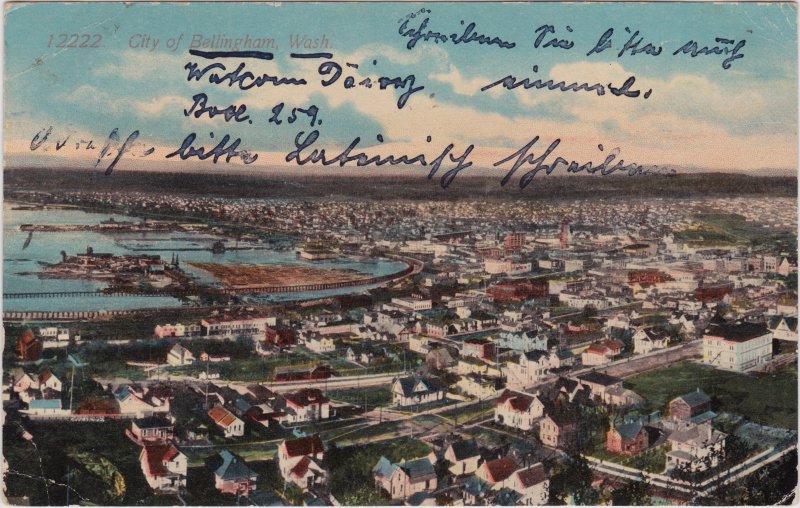 Schreiben Sie bitte auch
12222. City of Bellingham, Wash.
Watcomn Dairy einmal.
Box. 259.
Adresse bitte Lateinisch schreiben